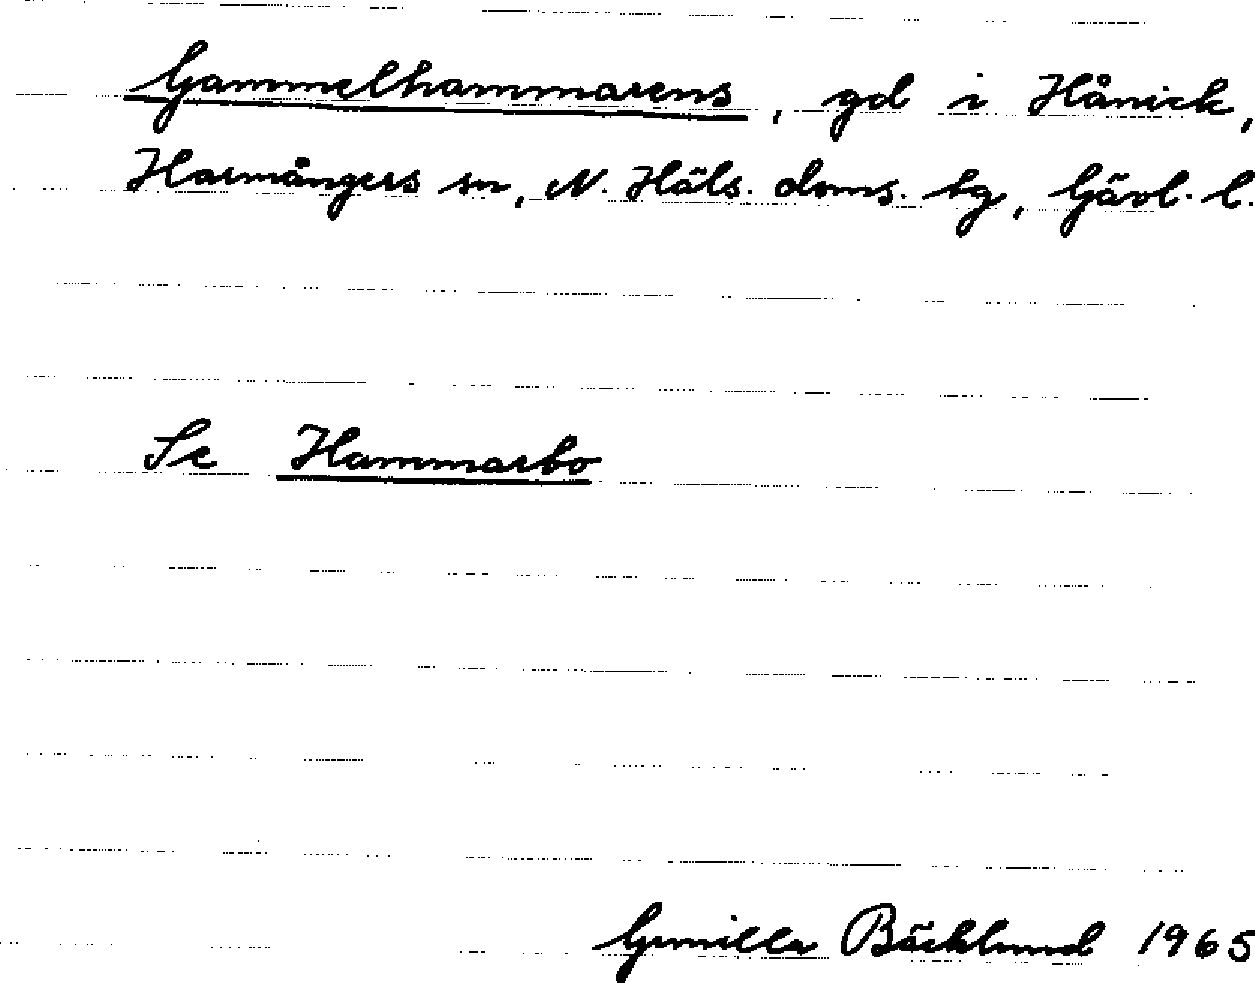 Gammelhammarens, gd i Hånick,
Harmångers sn, N. Häls. doms. tg, Gävl. l.
Se Hammarbo
Gunilla Bäcklund 1965